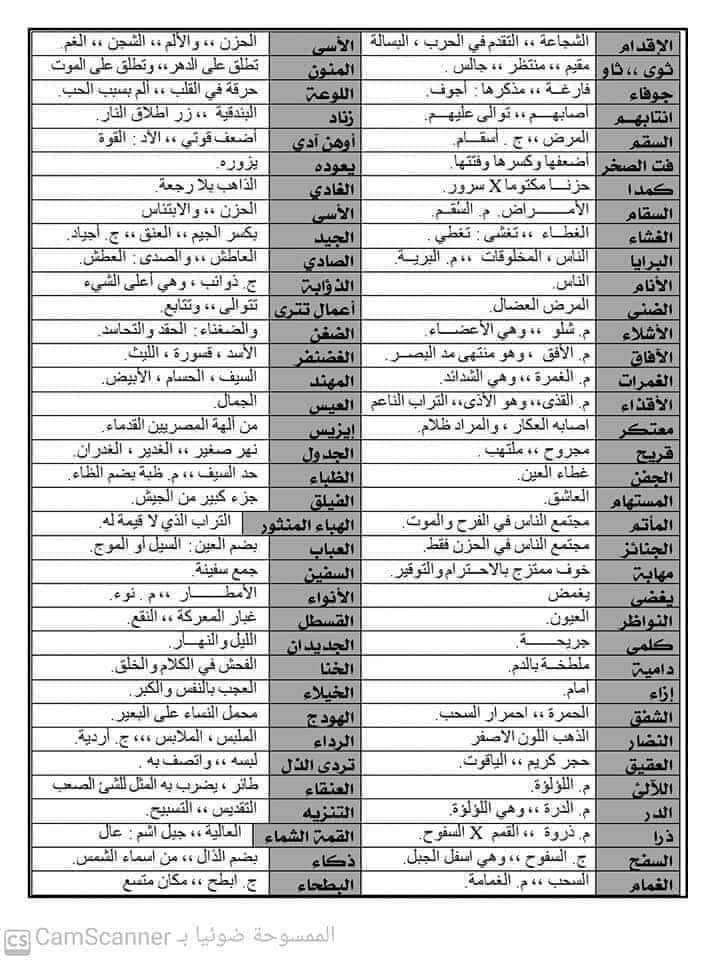 الإقدام الشجاعة ،، التقدم في الحرب ، البسالة الأسى الحزن ،، والألم ،، الشجن ،، الغم.
ثوى ،، ثاو مقيم ،، منتظر ،، جالس . المنون تطلق على الدهر،، وتطلق على الموت
جوفاء فارغة ،، مذكرها : أجوف. اللوعة حرقة في القلب ،، ألم بسبب الحب.
انتابهم أصابهم ،، توالى عليهم. زناد البندقية ،، زر اطلاق النار.
السقم المرض ،، ج . أسقام. أوهن آدي أضعف قوتي ،، الآد : القوة
فت الصخر أضعفها وكسرها وفتتها. يعوده يزوره.
كمدا حزنا مكتوما X سرور. الغادي الذاهب بلا رجعة.
السقام الأمراض. م. السُقم. الأسى الحزن ،، والابتناس
الغشاء الغطاء ،، تغشى : تغطي . الجيد بكسر الجيم ،، العنق ،، ج. أجياد.
البرايا الناس ، المخلوقات ،، م. البرية. الصادي العاطش ،، والصدى : العطش.
الأنام الناس. الذؤابة ج. ذوائب ، وهي أعلى الشيء
الضنى المرض العضال. أعمال تترى تتوالى ،، وتتابع.
الأشلاء م. شلو ،، وهي الأعضاء. الضغن والضغناء : الحقد والتحاسد.
الآفاق م. الأفق ، وهو منتهى مد البصر. الغضنفر الأسد ، قسورة ، الليث.
الغمرات م. الغمرة ،، وهي الشدائد. المهند السيف ، الحسام ، الأبيض.
الأقذاء م. القذى،، وهو الأذى،، التراب الناعم العيس الجمال.
معتكر اصابه العكار ، والمراد ظلام. إيزيس من آلهة المصريين القدماء.
قريح مجروح ،، ملتهب . الجدول نهر صغير ،، الغدير ، الغدران.
الجفن غطاء العين. الظباء حد السيف ،، م. ظبة بضم الظاء.
المستهام العاشق. الفيلق جزء كبير من الجيش.
المأتم مجتمع الناس في الفرح والموت. الهباء المنثور التراب الذي لا قيمة له.
الجنائز مجتمع الناس في الحزن فقط. العباب بضم العين : السيل أو الموج.
مهابة خوف ممتزج بالاحترام والتوقير. السفين جمع سفينة.
يغضي يغمض الأنواء الأمطار ،، م . نوء.
النواظر العيون. القسطل غبار المعركة ،، النقع.
كلمى جريحة. الجديدان الليل والنهار.
دامية ملطخة بالدم. الخنا الفحش في الكلام والخلق.
إزاء أمام. الخيلاء العجب بالنفس والكبر.
الشفق الحمرة ،، احمرار السحب. الهودج محمل النساء على البعير.
النضار الذهب اللون الاصفر الرداء الملبس ، الملابس ،،، ج. أردية.
العقيق حجر كريم ،، الياقوت. تردى الذل لبسه ،، واتصف به .
اللآلئ م. اللؤلؤة. العنقاء طائر ، يضرب به المثل للشئ الصعب
الدر م. الدرة ،، وهي اللؤلؤة. التنزيه التقديس ،، التسبيح.
ذرا م. ذروة ،، القمم X السفوح. القمة الشماء العالية ،، جبل اشم : عال
السفح ج. السفوح ،، وهي اسفل الجبل. ذكاء بضم الذال ،، من اسماء الشمس.
الغمام السحب ،، م. الغمامة. البطحاء ج. ابطح ،، مكان متسع
الممسوحة ضوئيا بـ CamScanner CS